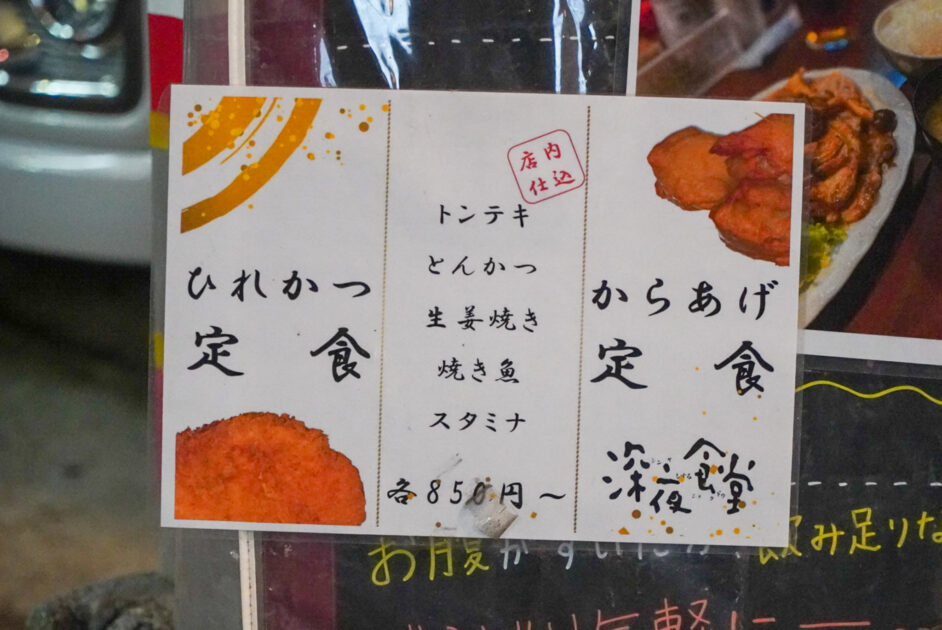 ひれかつ
定食
店内
仕込
トンテキ
とんかつ
生姜焼き
焼き魚
スタミナ
各850円～
からあげ
定食
深夜食堂
お腹が
飲み足りな
気軽に